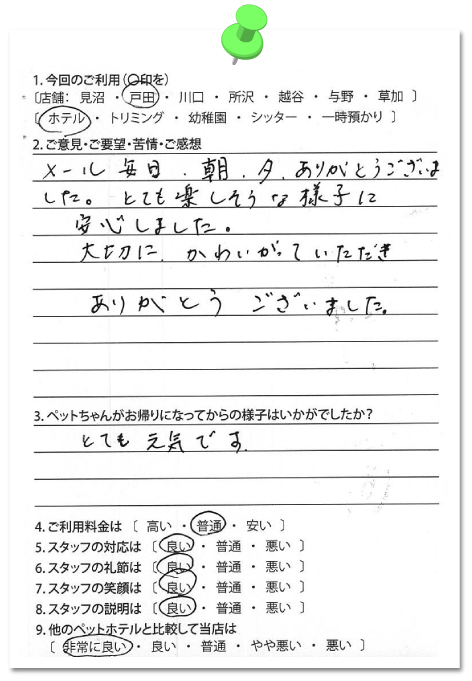 1. 今回のご利用（〇印を）
〔店舗： 見沼 ・ 戸田 ・ 川口 ・ 所沢 ・ 越谷 ・ 与野 ・ 草加 〕
〔 ホテル ・ トリミング ・ 幼稚園 ・ シッター ・ 一時預かり 〕
2. ご意見・ご要望・苦情・ご感想
メール毎日、朝、夕、ありがとうございま
した。とても楽しそうな様子に
安心しました。
大切に、かわいがっていただき
ありがとう ございました。
3. ペットちゃんがお帰りになってからの様子はいかがでしたか？
とても元気です。
4. ご利用料金は 〔 高い ・ 普通 ・ 安い 〕
5. スタッフの対応は 〔 良い ・ 普通 ・ 悪い 〕
6. スタッフの礼節は 〔 良い ・ 普通 ・ 悪い 〕
7. スタッフの笑顔は 〔 良い ・ 普通 ・ 悪い 〕
8. スタッフの説明は 〔 良い ・ 普通 ・ 悪い 〕
9. 他のペットホテルと比較して当店は
〔 非常に良い ・ 良い ・ 普通 ・ やや悪い ・ 悪い 〕